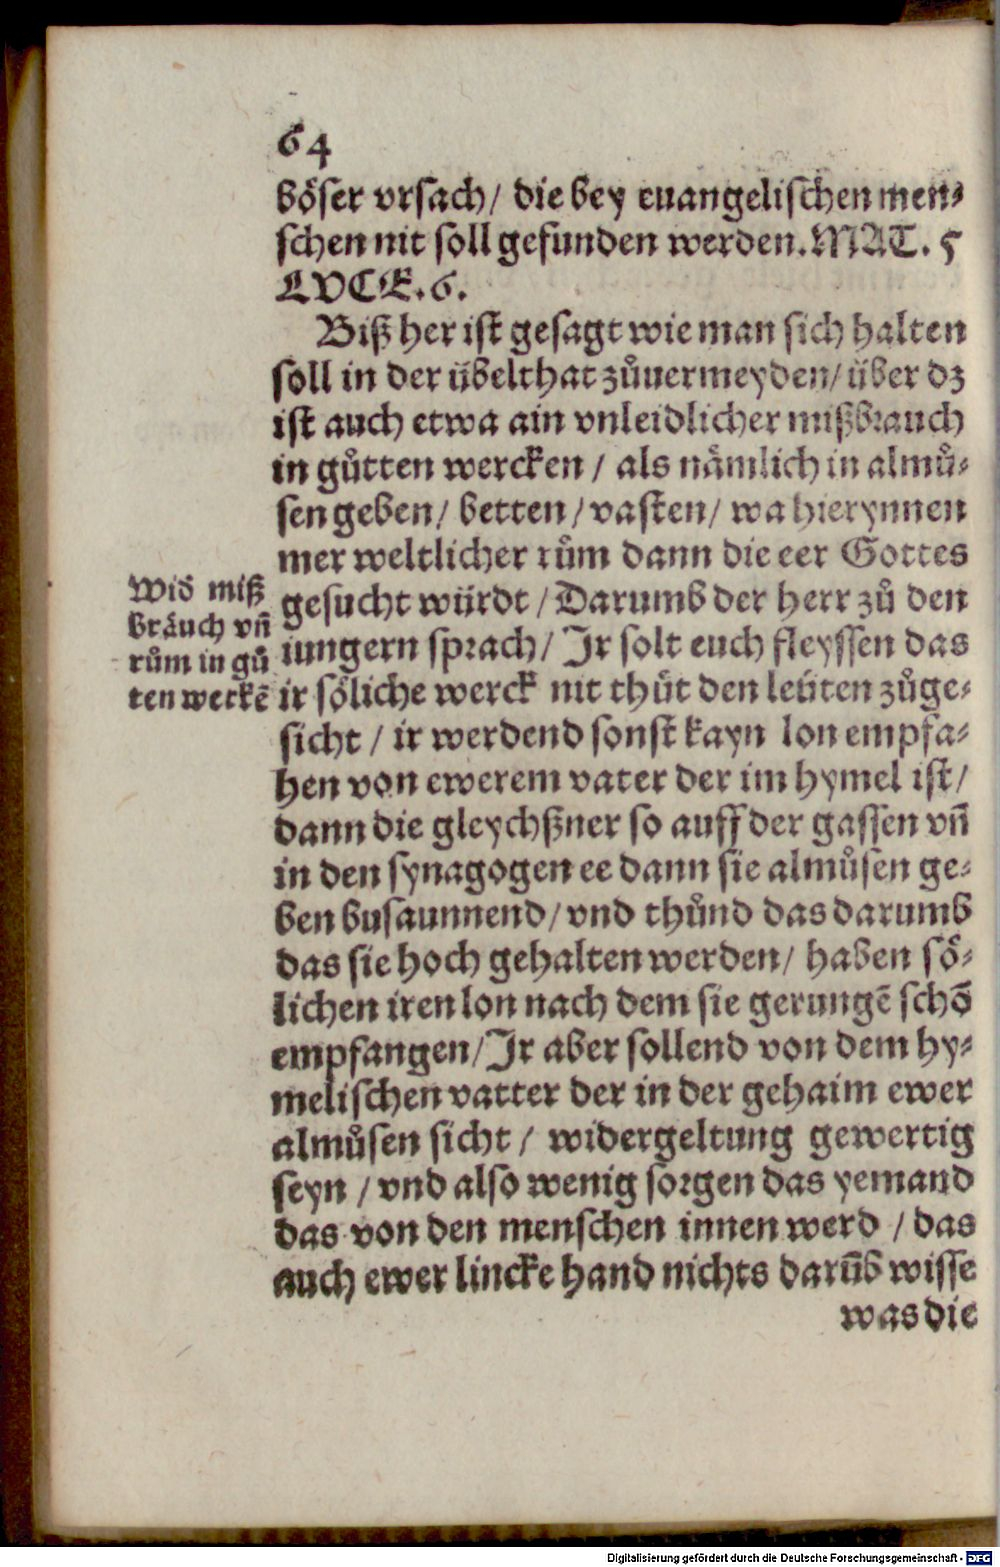 64
böser vrsach/ die bey euangelischen men⸗
schen nit soll gefunden werden. MAT. 5
LVCE. 6.
Biß her ist gesagt wie man sich halten
soll in der übelthat zůuermeyden/ über dz
ist auch etwa ain vnleidlicher mißbrauch
in gůtten wercken / als nämlich in almů⸗
sen geben/ betten / vasten/ wa hierynnen
mer weltlicher rům dann die eer Gottes
gesucht würdt / Darumb der herr zů den
iungern sprach/ Ir solt euch fleyssen das
ir söliche werck nit thůt den leüten zůge⸗
sicht / ir werdend sonst kayn lon empfa⸗
hen von ewerem vater der im hymel ist/
dann die gleychßner so auff der gassen vñ
in den synagogen ee dann sie almůsen ge⸗
ben busaunnend/ vnd thůnd das darumb
das sie hoch gehalten werden/ haben sö⸗
lichen iren lon nach dem sie gerungẽ schõ
empfangen/ Ir aber sollend von dem hy⸗
melischen vatter der in der gehaim ewer
almůsen sicht / widergeltung gewertig
seyn / vnd also wenig sorgen das yemand
das von den menschen innen werd / das
auch ewer lincke hand nichts darũb wisse
was die
Wid miß
bräuch vñ
rům in gů
ten werckẽ
Digitalisierung gefördert durch die Deutsche Forschungsgemeinschaft - DFG